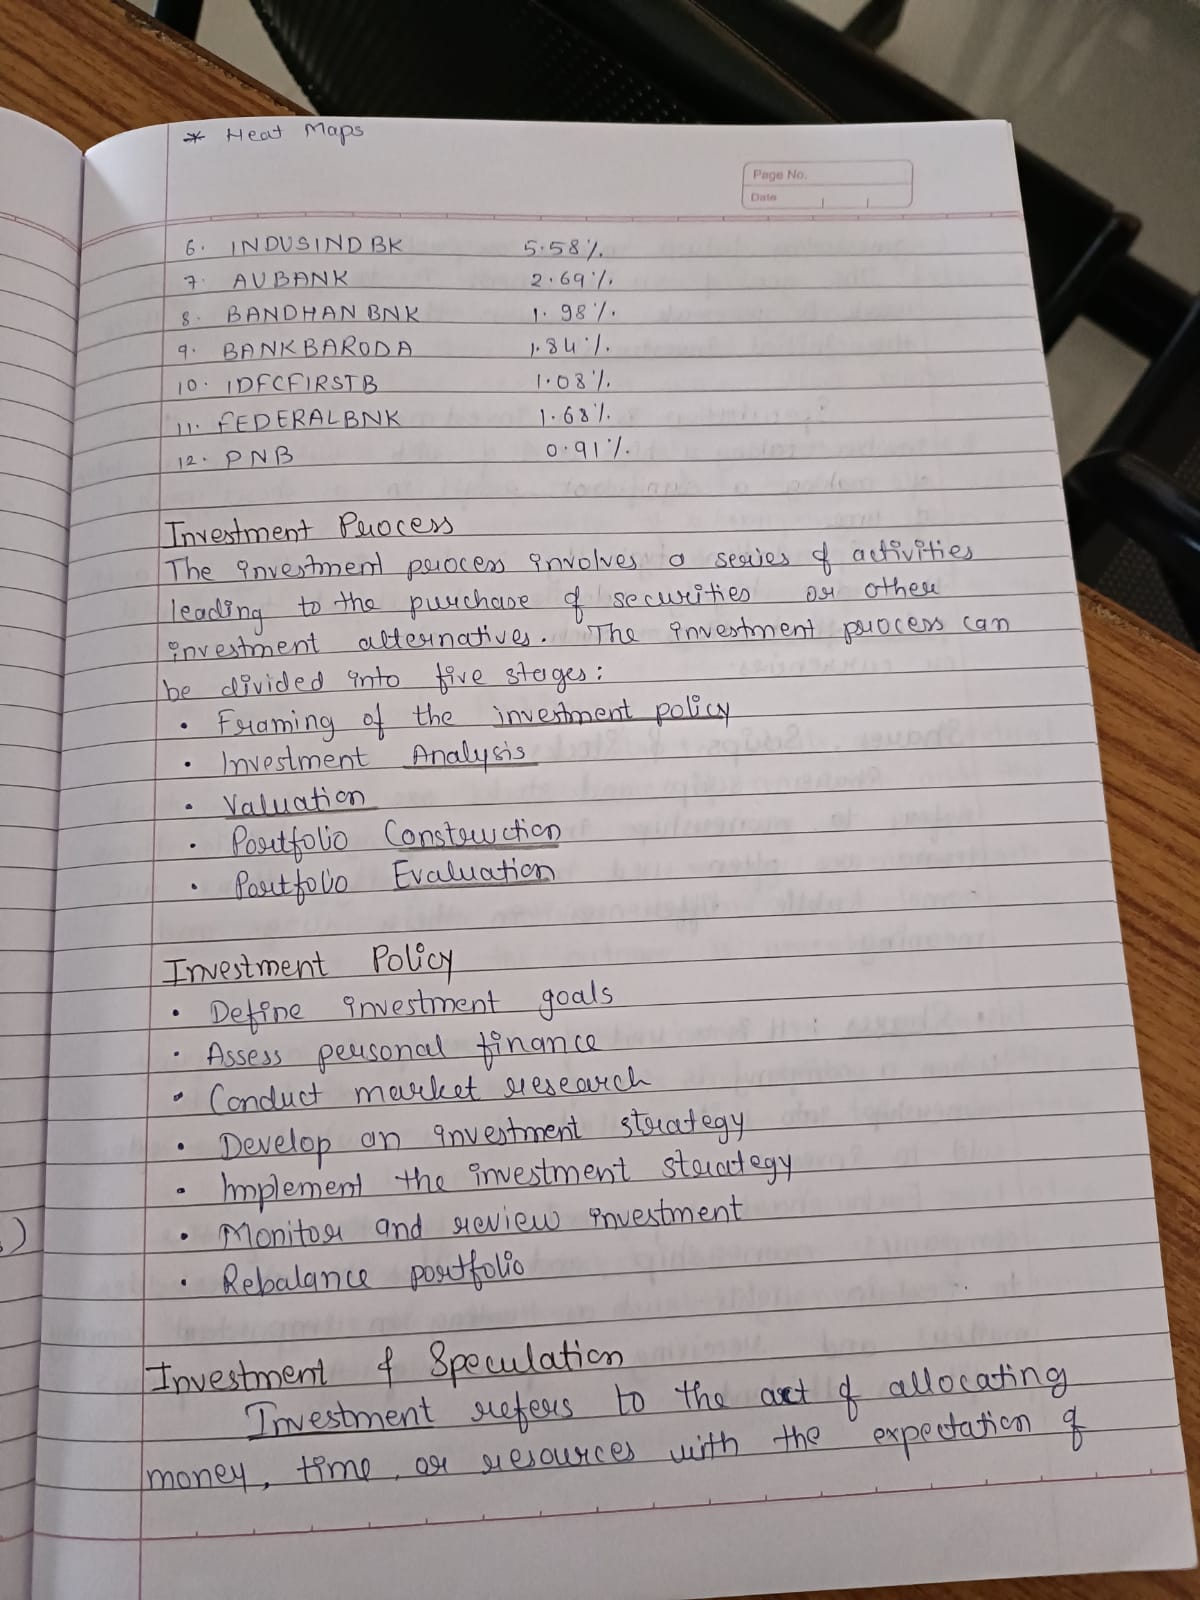 * Heat Maps
Page No.
Date
6. INDUSINDBK 5.58%.
7. AUBANK 2.69%.
8. BANDHANBNK 1.98%.
9. BANKBARODA 1.84%.
10. IDFCFIRSTB 1.08%.
11. FEDERALBNK 1.68%.
12. PNB 0.91%.
Investment Process
The investment process involves a series of activities
leading to the purchase of securities or other
investment alternatives. The investment process can
be divided into five stages:
• Framing of the investment policy
• Investment Analysis
• Valuation
• Portfolio Construction
• Portfolio Evaluation
Investment Policy
• Define investment goals
• Assess personal finance
• Conduct market research
• Develop an investment strategy
• Implement the investment strategy
• Monitor and review investment
• Rebalance portfolio
Investment & Speculation
Investment refers to the act of allocating
money, time, or resources with the expectation of